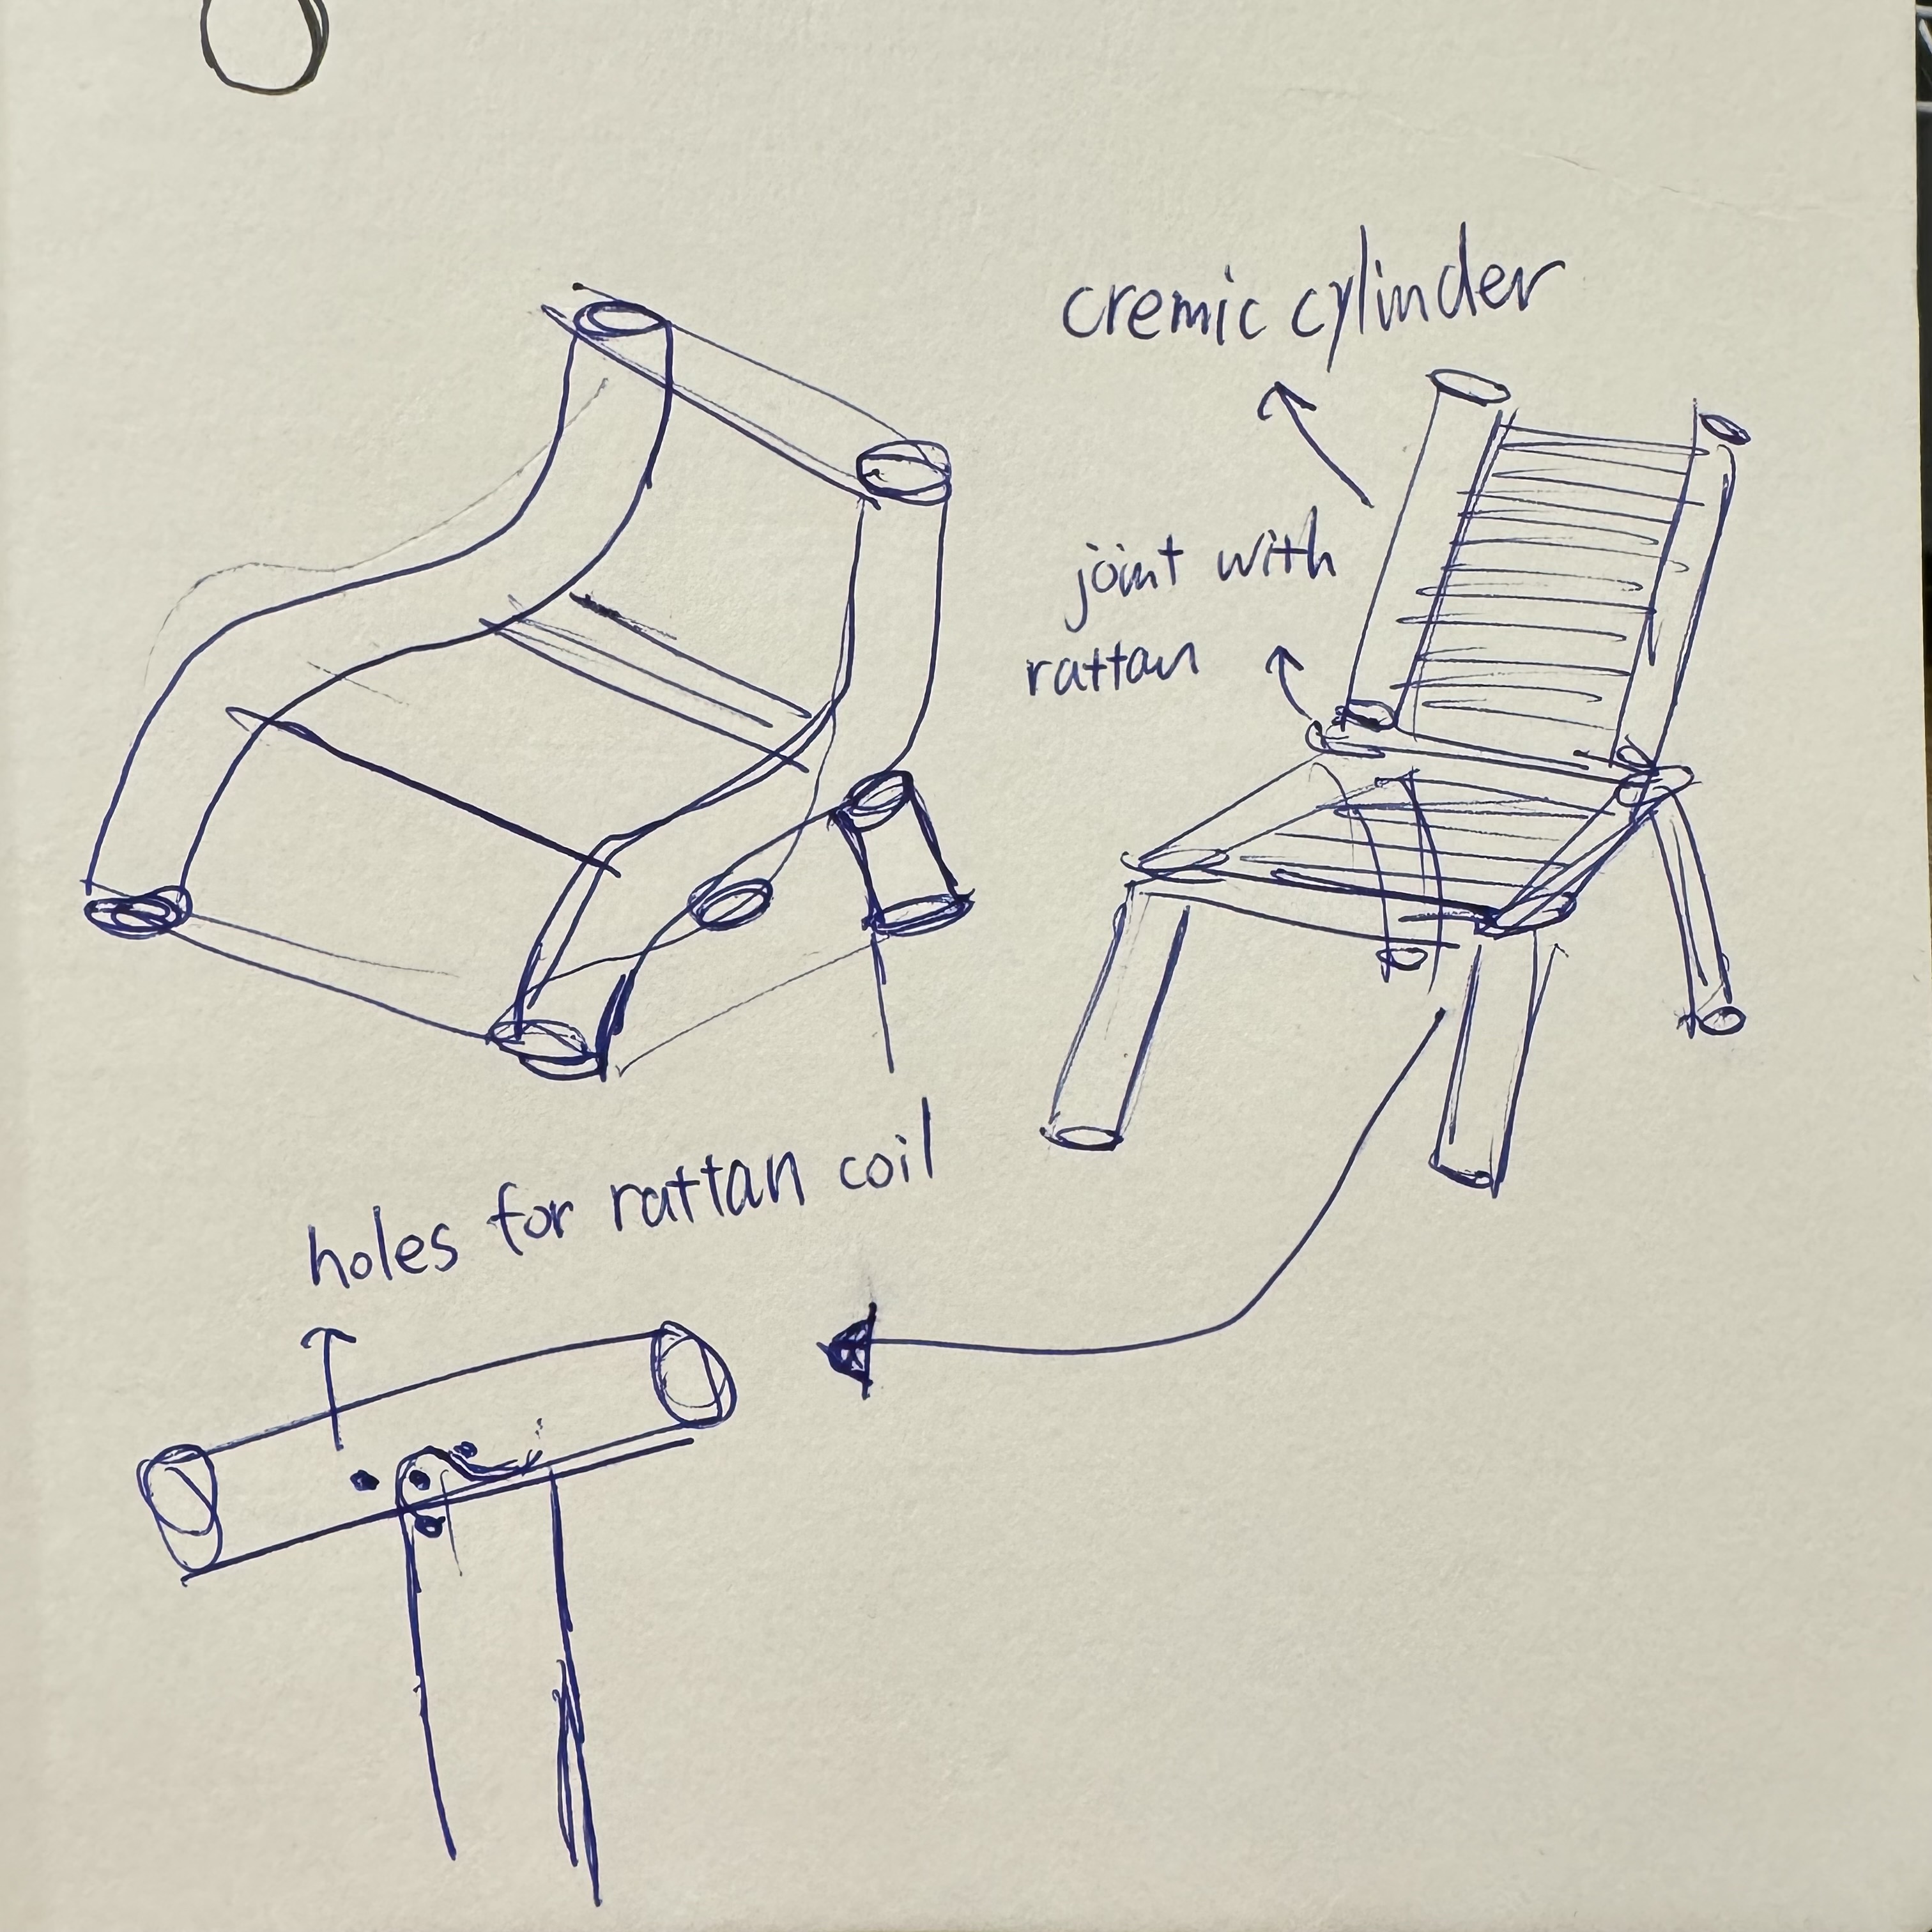 cremic cylinder
joint with
rattan
holes for rattan coil